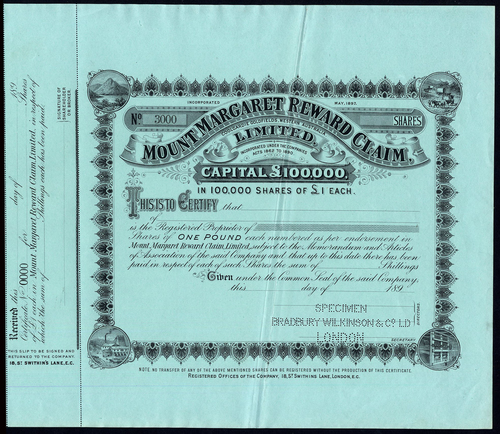 INCORPORATED MAY, 1897.
No 3000 SHARES
MOUNT MARGARET REWARD CLAIM,
COOLGARDIE GOLDFIELDS WESTERN AUSTRALIA
LIMITED.
INCORPORATED UNDER THE COMPANIES
ACTS 1862 TO 1890.
CAPITAL £100,000.
IN 100,000 SHARES OF £1 EACH.
THIS IS TO CERTIFY that
of
is the Registered Proprietor of
Shares of ONE POUND each numbered as per endorsement in
Mount Margaret Reward Claim, Limited, subject to the Memorandum and Articles
of Association of the said Company and that up to this date there has been
paid in respect of each of such Shares the sum of Shillings
Given under the Common Seal of the said Company,
this day of 189
SPECIMEN
BRADBURY WILKINSON & Co LD
LONDON
DIRECTORS
SECRETARY
NOTE. NO TRANSFER OF ANY OF THE ABOVE MENTIONED SHARES CAN BE REGISTERED WITHOUT THE PRODUCTION OF THIS CERTIFICATE.
REGISTERED OFFICES OF THE COMPANY, 18, ST SWITHINS LANE, LONDON, E.C.
Received this day of 189
Certificate No 0000 for Shares
of £1 each in Mount Margaret Reward Claim, Limited, in respect of
which the sum of Shillings each has been paid.
SIGNATURE OF
SHAREHOLDER
OR BROKER
THIS SLIP TO BE SIGNED AND
RETURNED TO THE COMPANY
18, ST SWITHIN'S LANE, E.C.